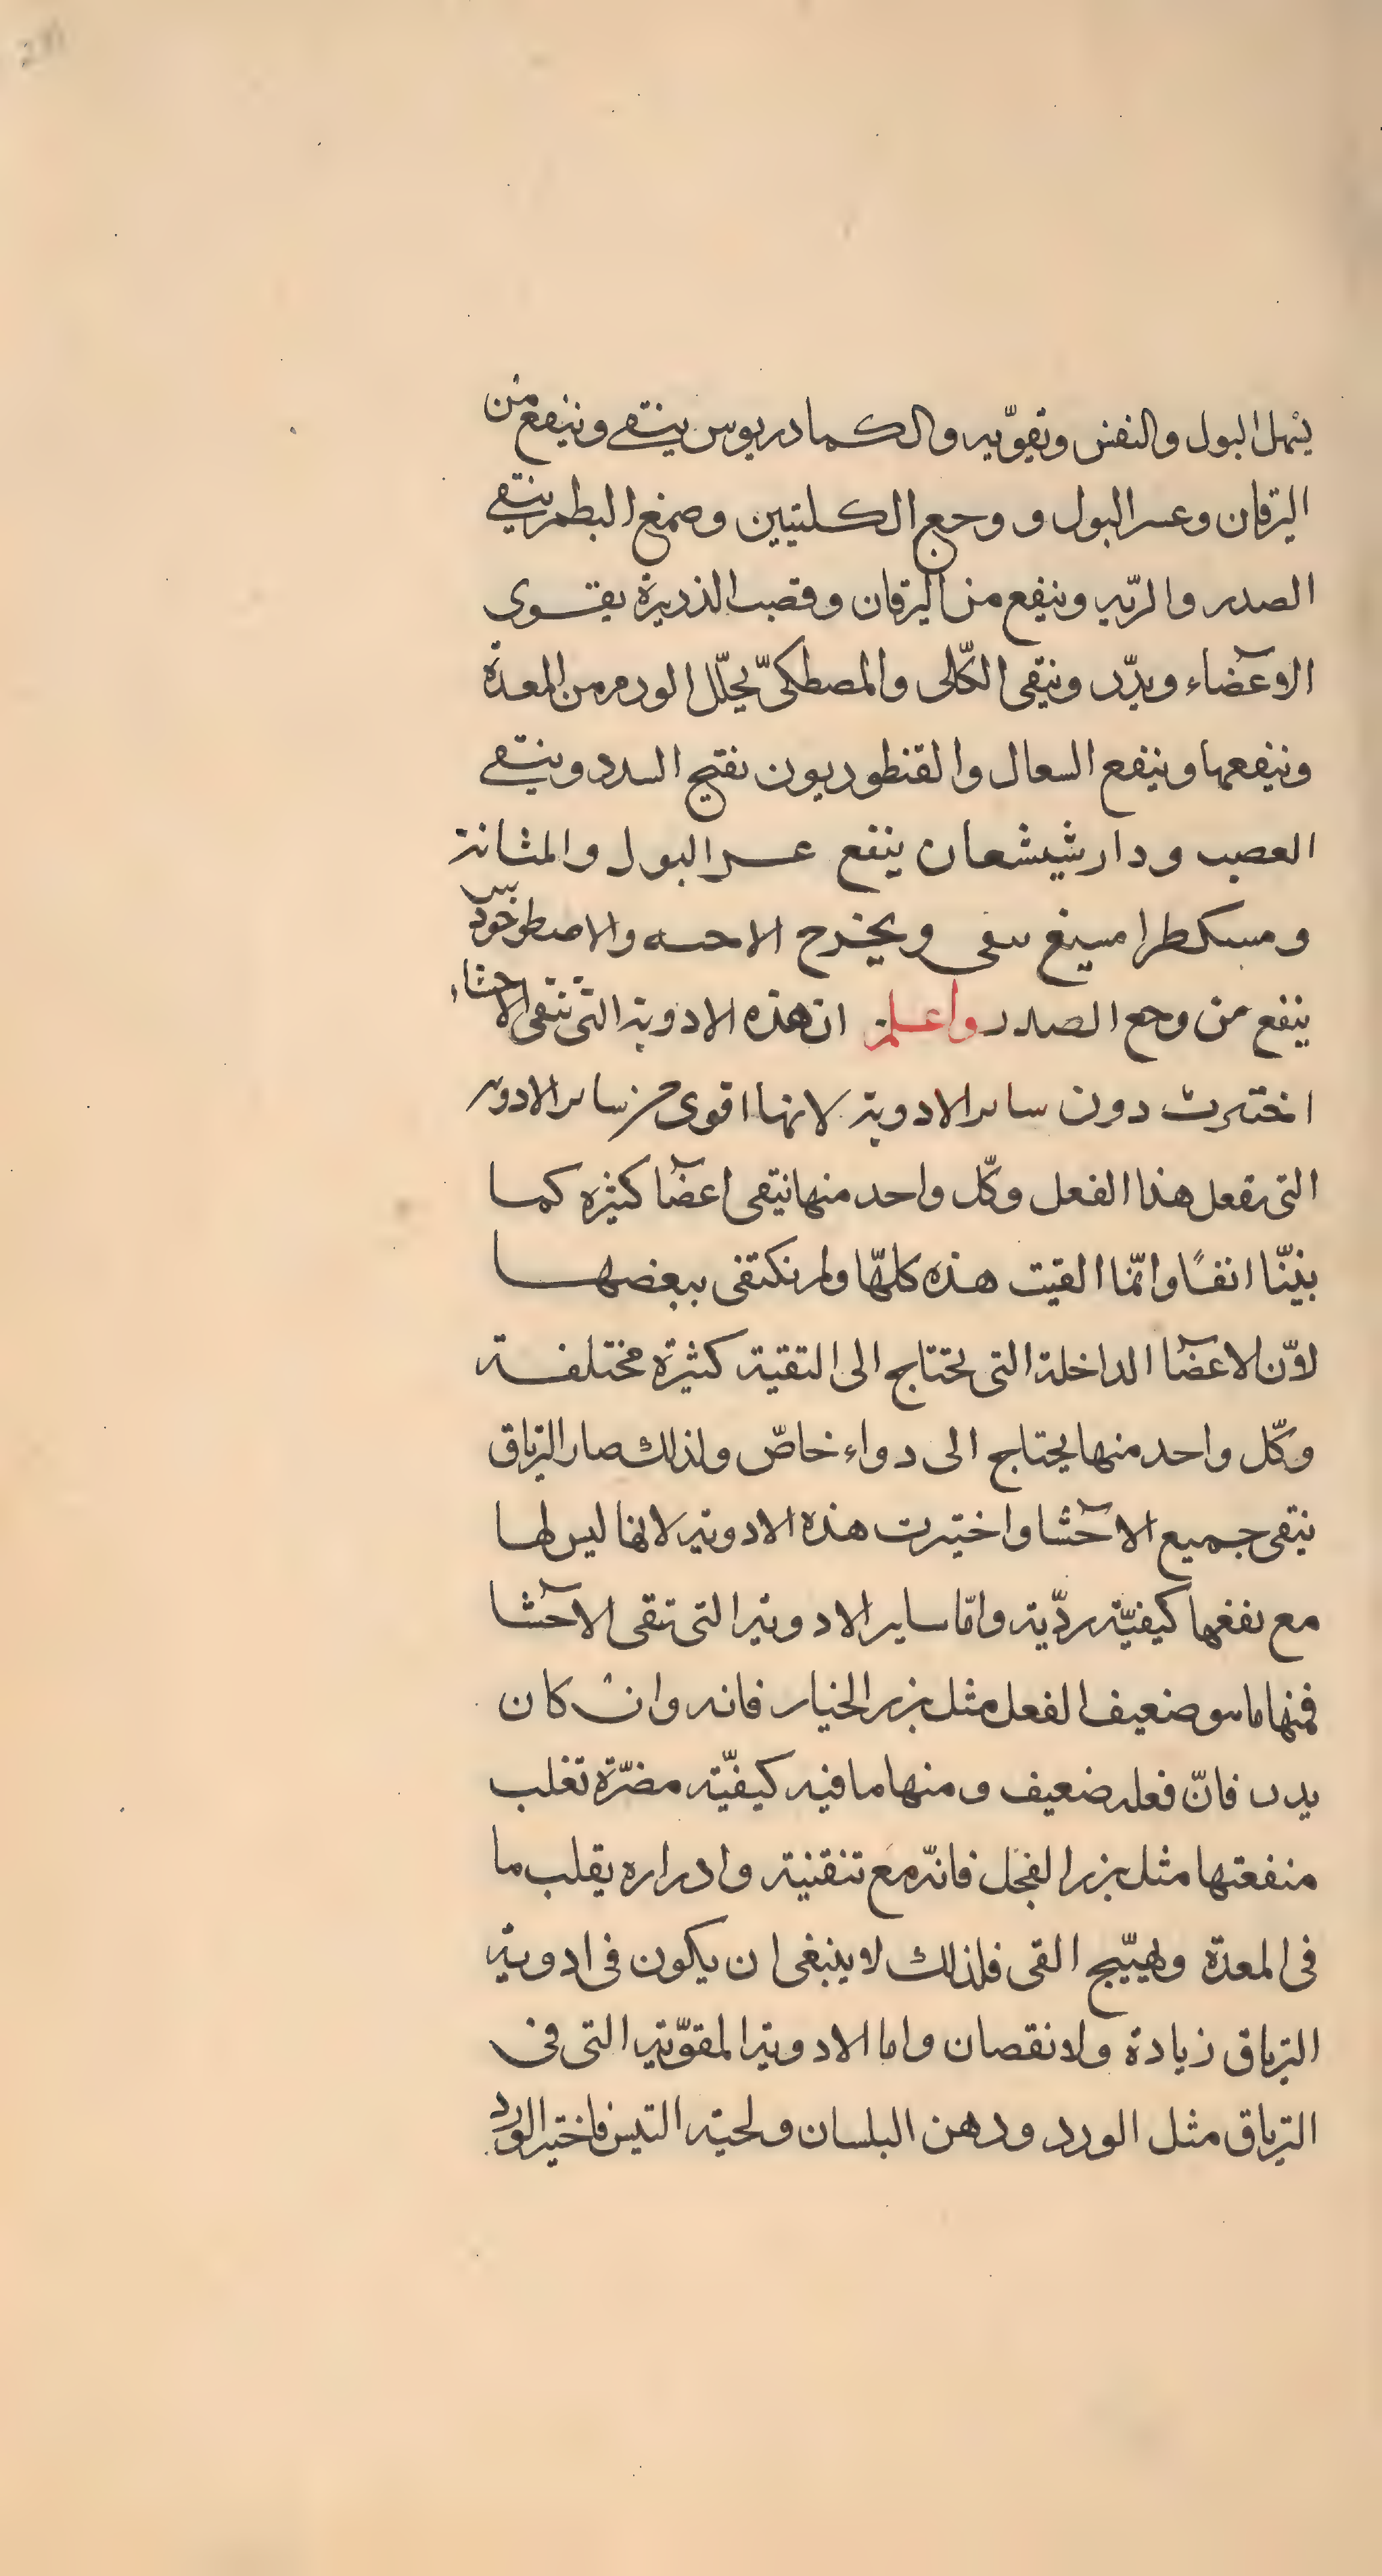 يسهل البول والنفس وتقويه والكمادريوس ينقى وينفع من
اليرقان وعسر البول و وجع الكليتين وصمغ البطم ينقى
الصدر والريه وينفع من اليرقان وقصب الذريرة يقوى
الاعضاء ويدّر وينقى الكلى والمصطكى يحلّل الورم من المعدة
وينفعها وينفع السعال والقنطوريون يفتح السدد وينقى
العصب ودار شيشعان ينفع عسر البول والمثانة
ومسكطرامسيغ ينقى ويخرج الاجنه والاصطوخودس
ينفع من وجع الصدر واعلم ان هذه الادوية التى تنقى الاحشاء
اختيرت دون ساير الادوية لانها اقوى من ساير الادويه
التى تفعل هذا الفعل وكلّ واحد منها ينقى اعضآ كثيره كما
بيّنّا انفًا وانّما القيت هذه كلهّا ولم نكتفى ببعضها
لاّن الاعضآ الداخلة التى تحتاج الى التقية كثيرة مختلفة
وكلّ واحد منها يحتاج الى دواء خاصّ ولذلك صار الترياق
ينقى جميع الاحشآ واختيرت هذه الادويه لانها ليس لها
مع نفعها كيفيّة ردّية وامّا ساير الادوية التى تنقى الاحشآ
فمنها ما هو ضعيف الفعل مثل بزر الخيار فانه وان كان
يدر فانّ فعله ضعيف ومنها ما فيه كيفيّة مضرّة تغلب
منفعتها مثل بزر الفجل فانّه مع تنقية وادراره يقلب ما
فى المعدة ويهيّج القى فلذلك لا ينبغى ان يكون فى ادوية
الترياق زيادة ولا نقصان واما الادوية المقوّية التى فى
الترياق مثل الورد ودهن البلسان ولحية التيس فاختير الورد